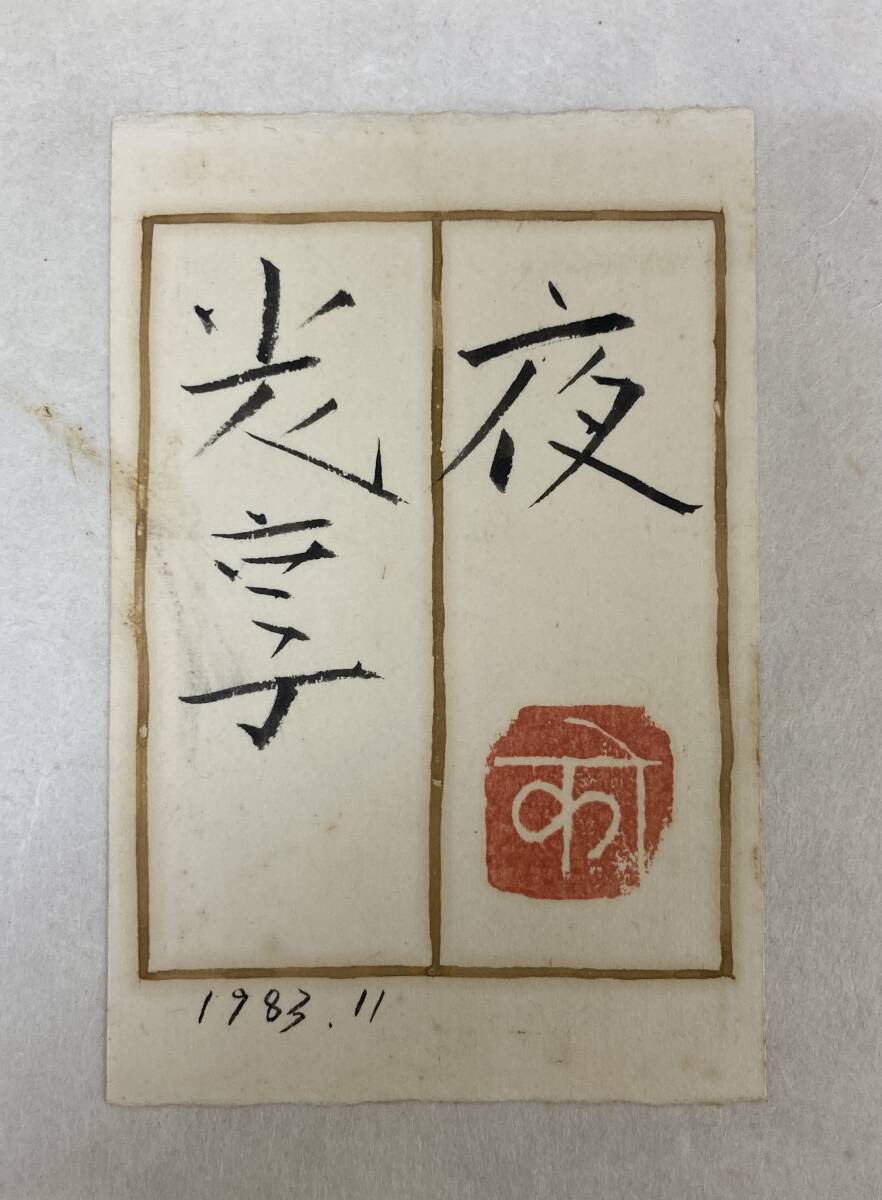 夜
को
光享
1983.11